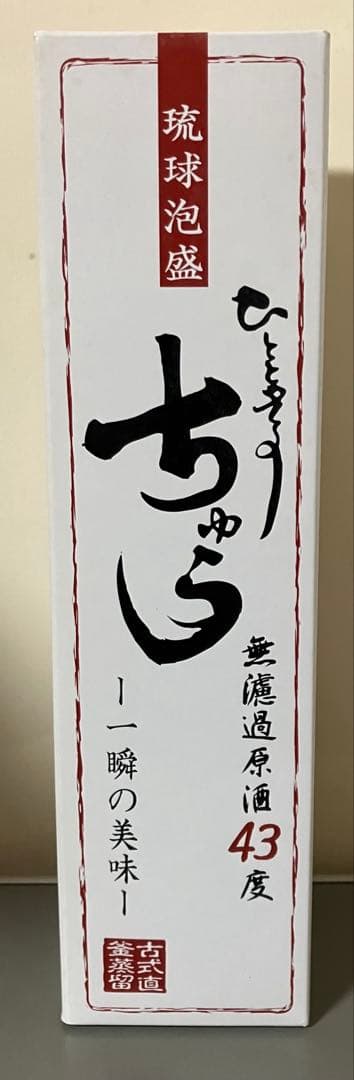 琉球泡盛
ひとときの
ちゅら
無濾過原酒43度
ー一瞬の美味ー
古式直
釜蒸留